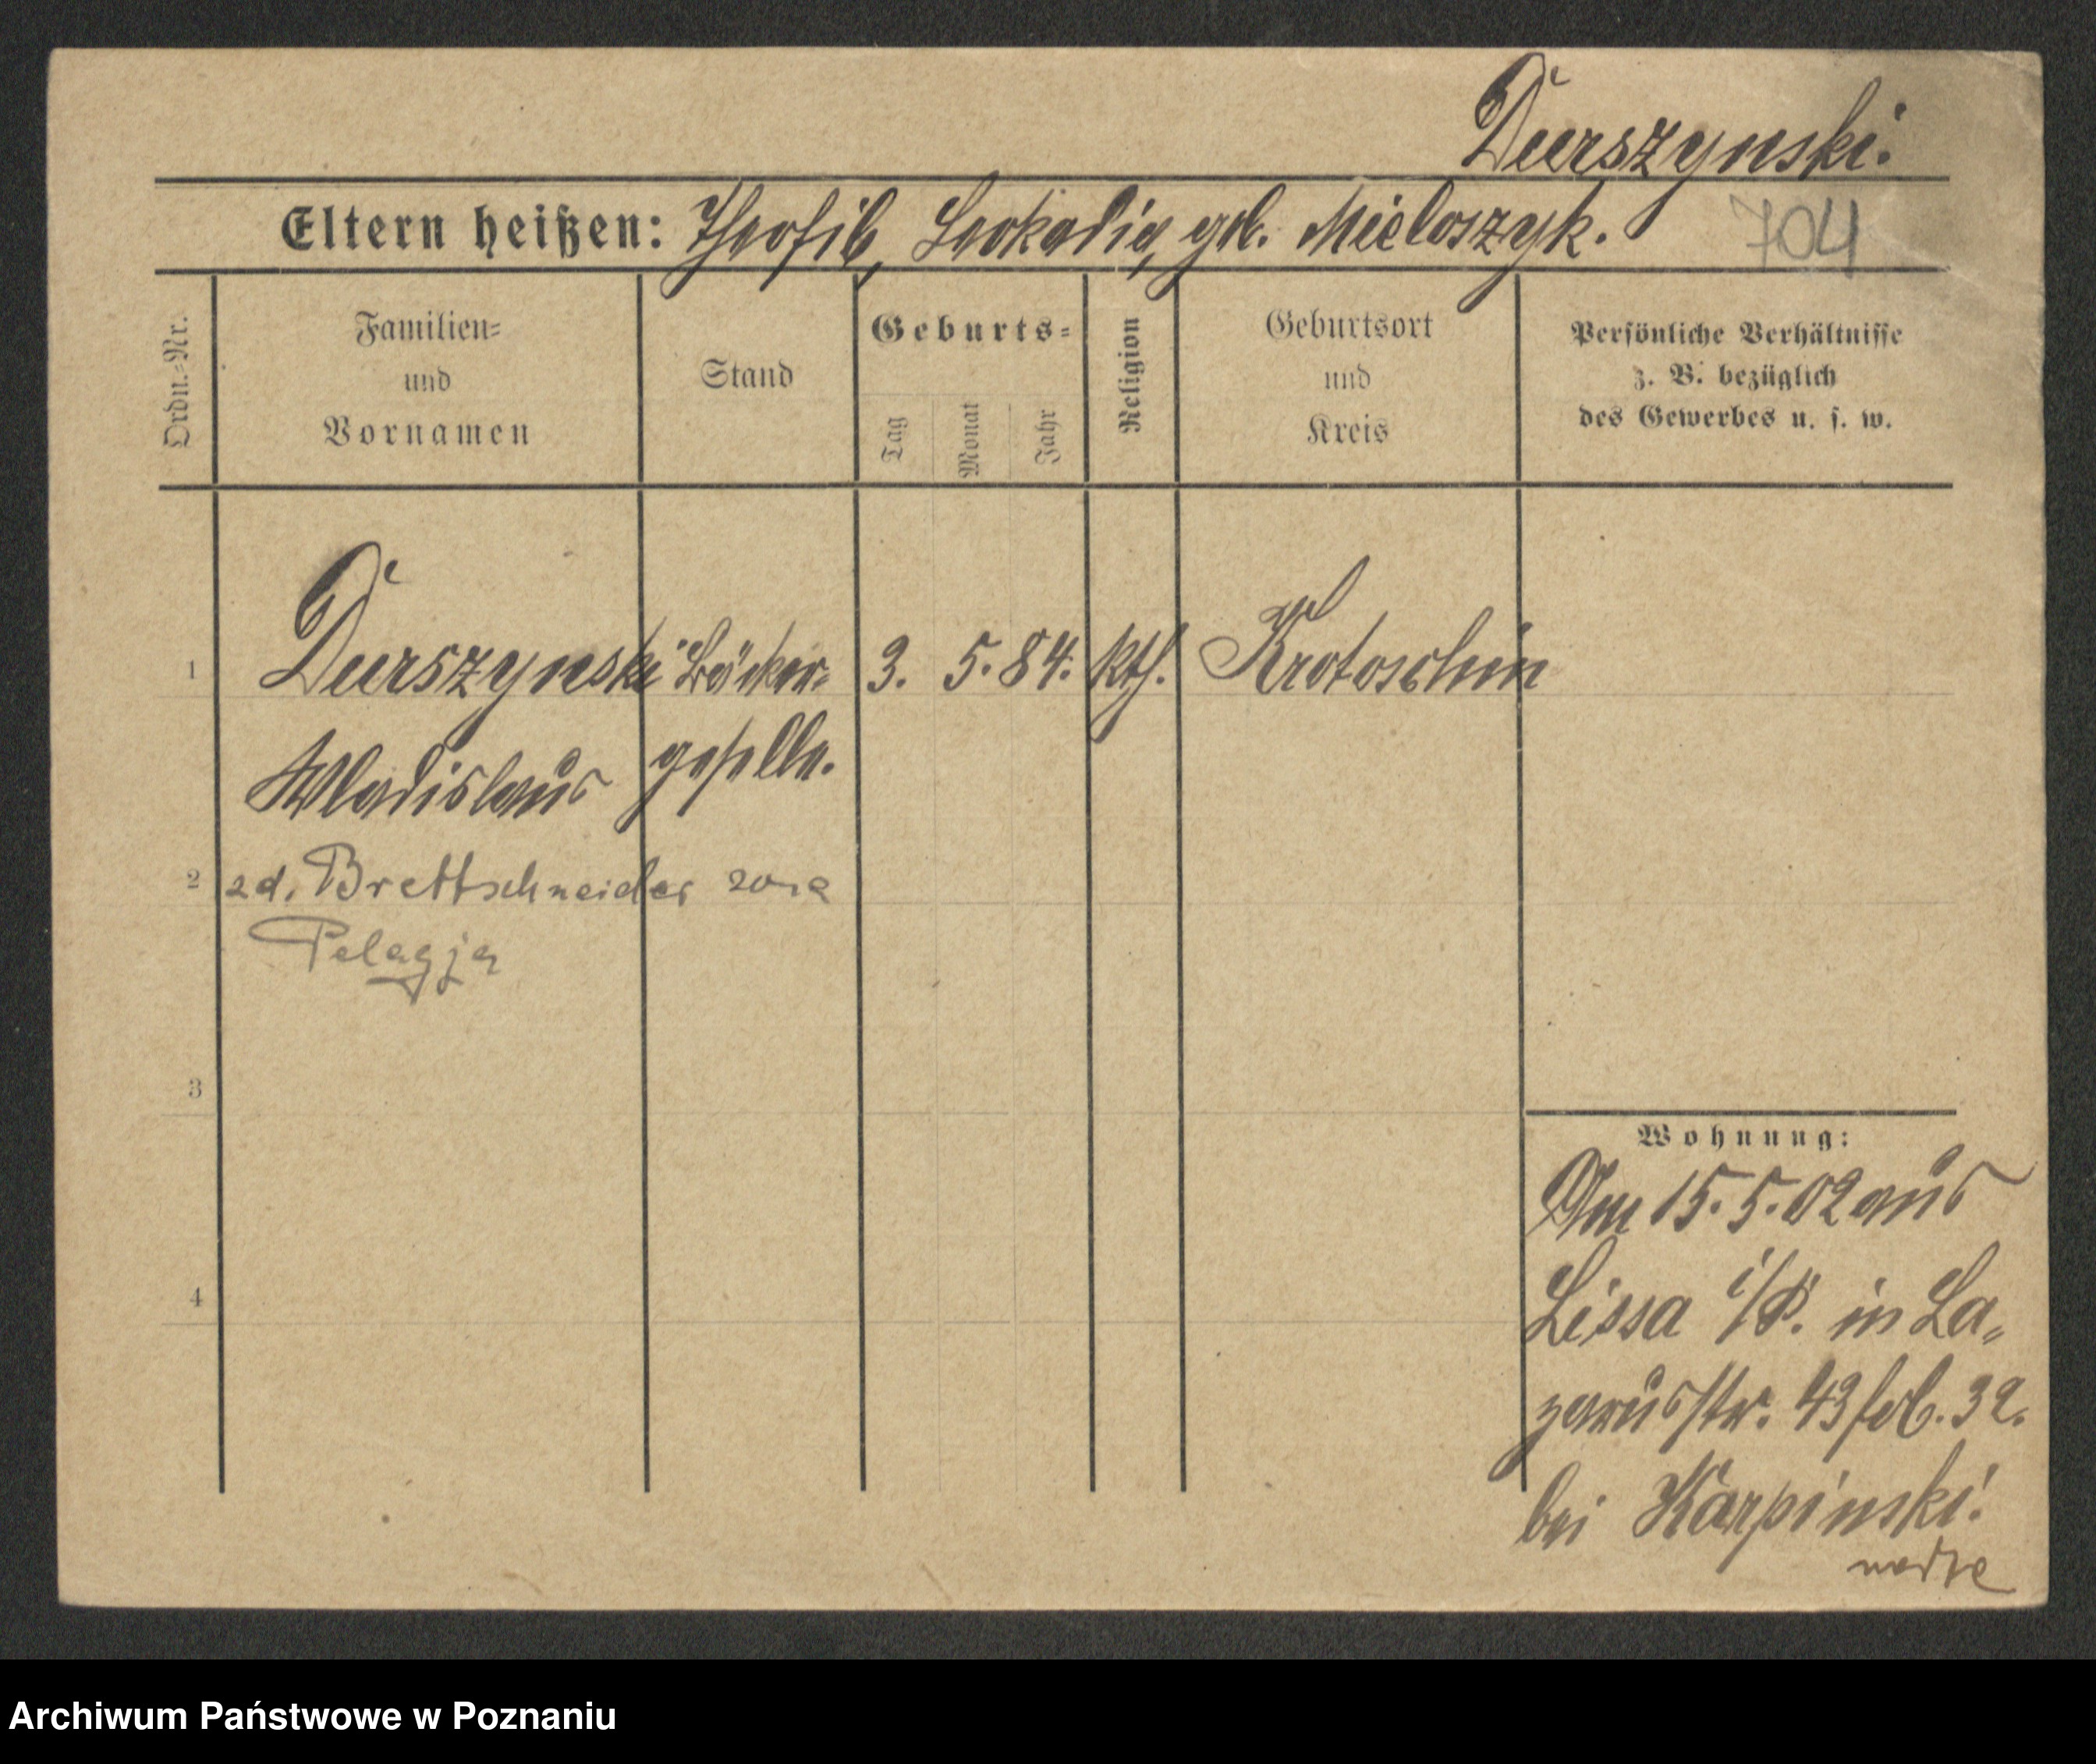 Durszynski.
Eltern heißen: Theofil, Leokadia, geb. Mieloszyk.
704
Ordn.-Nr.
Familien-
und
Vornamen
Stand
Geburts-
Tag
Monat
Jahr
Religion
Geburtsort
und
Kreis
Persönliche Verhältnisse
z. B. bezüglich
des Gewerbes u. s. w.
1 Durszynski Bäcker- 3. 5. 84. kth. Krotoschin
Wladislaus geselle.
2 Brettschneider
Pelagja
3
Wohnung:
Am 15.5.02 aus
Lissa i/P. in La-
4
zarusstr. 43 seb. 32.
bei Karpinski.
Archiwum Państwowe w Poznaniu